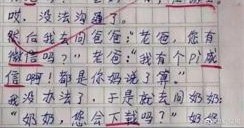 哎，没法沟通了。
然后我去问爸爸："老爸，您有
微信吗？"老爸："我有个P!威
信啊！都是你妈说了算"
我没办法了，于是就去问奶奶：
"奶奶，您会下载吗？"奶奶